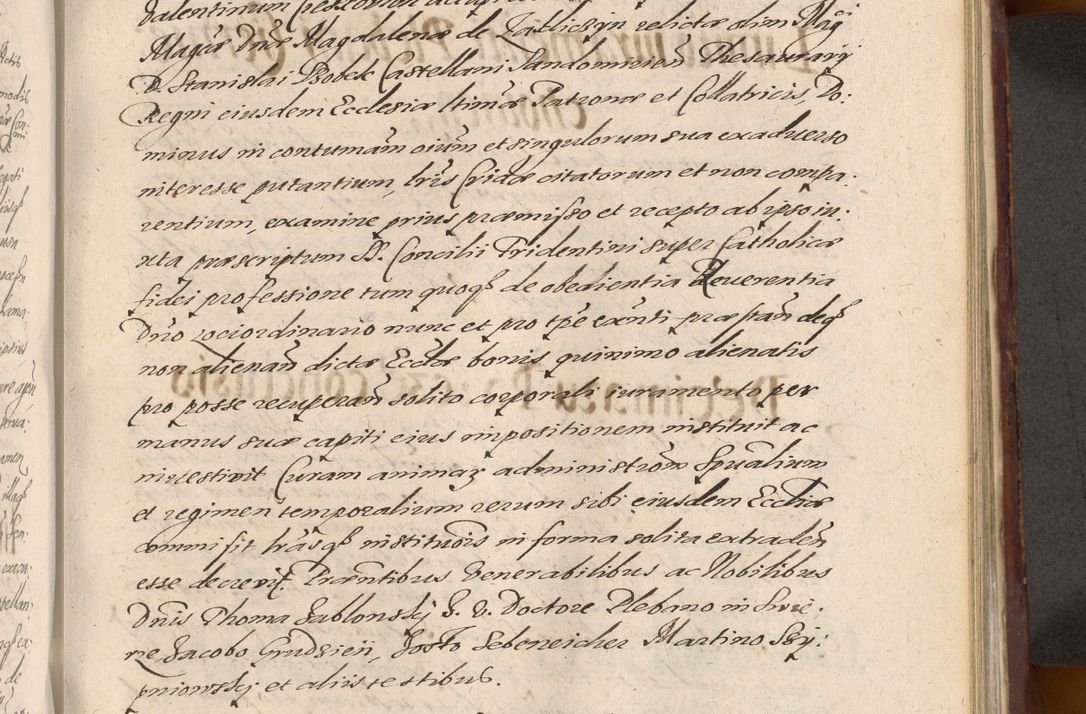 Magcae Dnae Magdalenae de Zakliczyn relictae olim Magci
D. Stanislai Bobek Castellani Sandomirien Thesaurarii
Regni eiusdem Ecclesiae ltimae Patronae et Collatricis, Do:
minus in contumam oium et singulorum sua exaduerso
interesse putantium, lris Cridae citatorum et non compa:
rentium, examine prius praemisso et recepto ab ipso in:
xta praescriptum SS. Concilii Tridentini super Catholicae
fidei professione tum quoqz de obedientia Reuerentia
Dno loci ordinario nunc et pro tpe exnti praestan deqz
non alienan dictae Ecclae bonis quinimo alienatis
pro posse recuperan solito corporali iuramento per
manus suae capiti eius impositionem instituit ac
inuestivit Curam animaz administraom Spualium
et regimen temporalium rerum sibi eiusdem Eccliae
commisit lrasqz institutois in forma solita extraden
esse decrevit. Praentibus Venerabilibus ac Nobilibus
Dnis Thoma Jablonskj J. V. Doctore Plebano in
Jacobo Grudzien, Josto Sebeneicher Martino Szy:
pniowskj et aliis testibus.